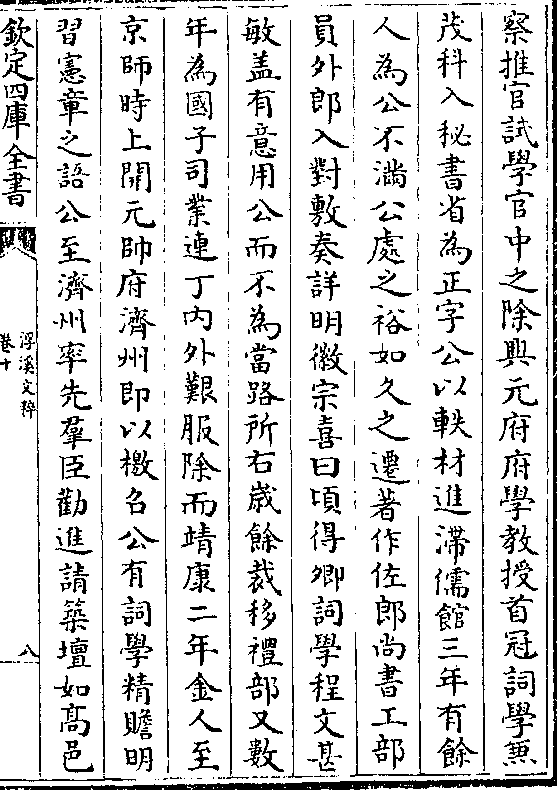 察推官試學官中之除興元府府學教授首冠詞學兼
茂科入秘書省為正字公以軼材進滯儒館三年有餘
人為公不滿公處之裕如久之遷著作佐郎尚書工部
員外郎入對敷奏詳明徽宗喜曰頃得卿詞學程文甚
敏盖有意用公而不為當路所右歲餘裁移禮部又數
年為國子司業連丁內外艱服除而靖康二年金人至
京師時上開元帥府濟州即以檄名公有詞學精贍明
習憲章之語公至濟州率先羣臣勸進請築壇如髙邑
欽定四庫全書
浮溪文粹
卷十
八